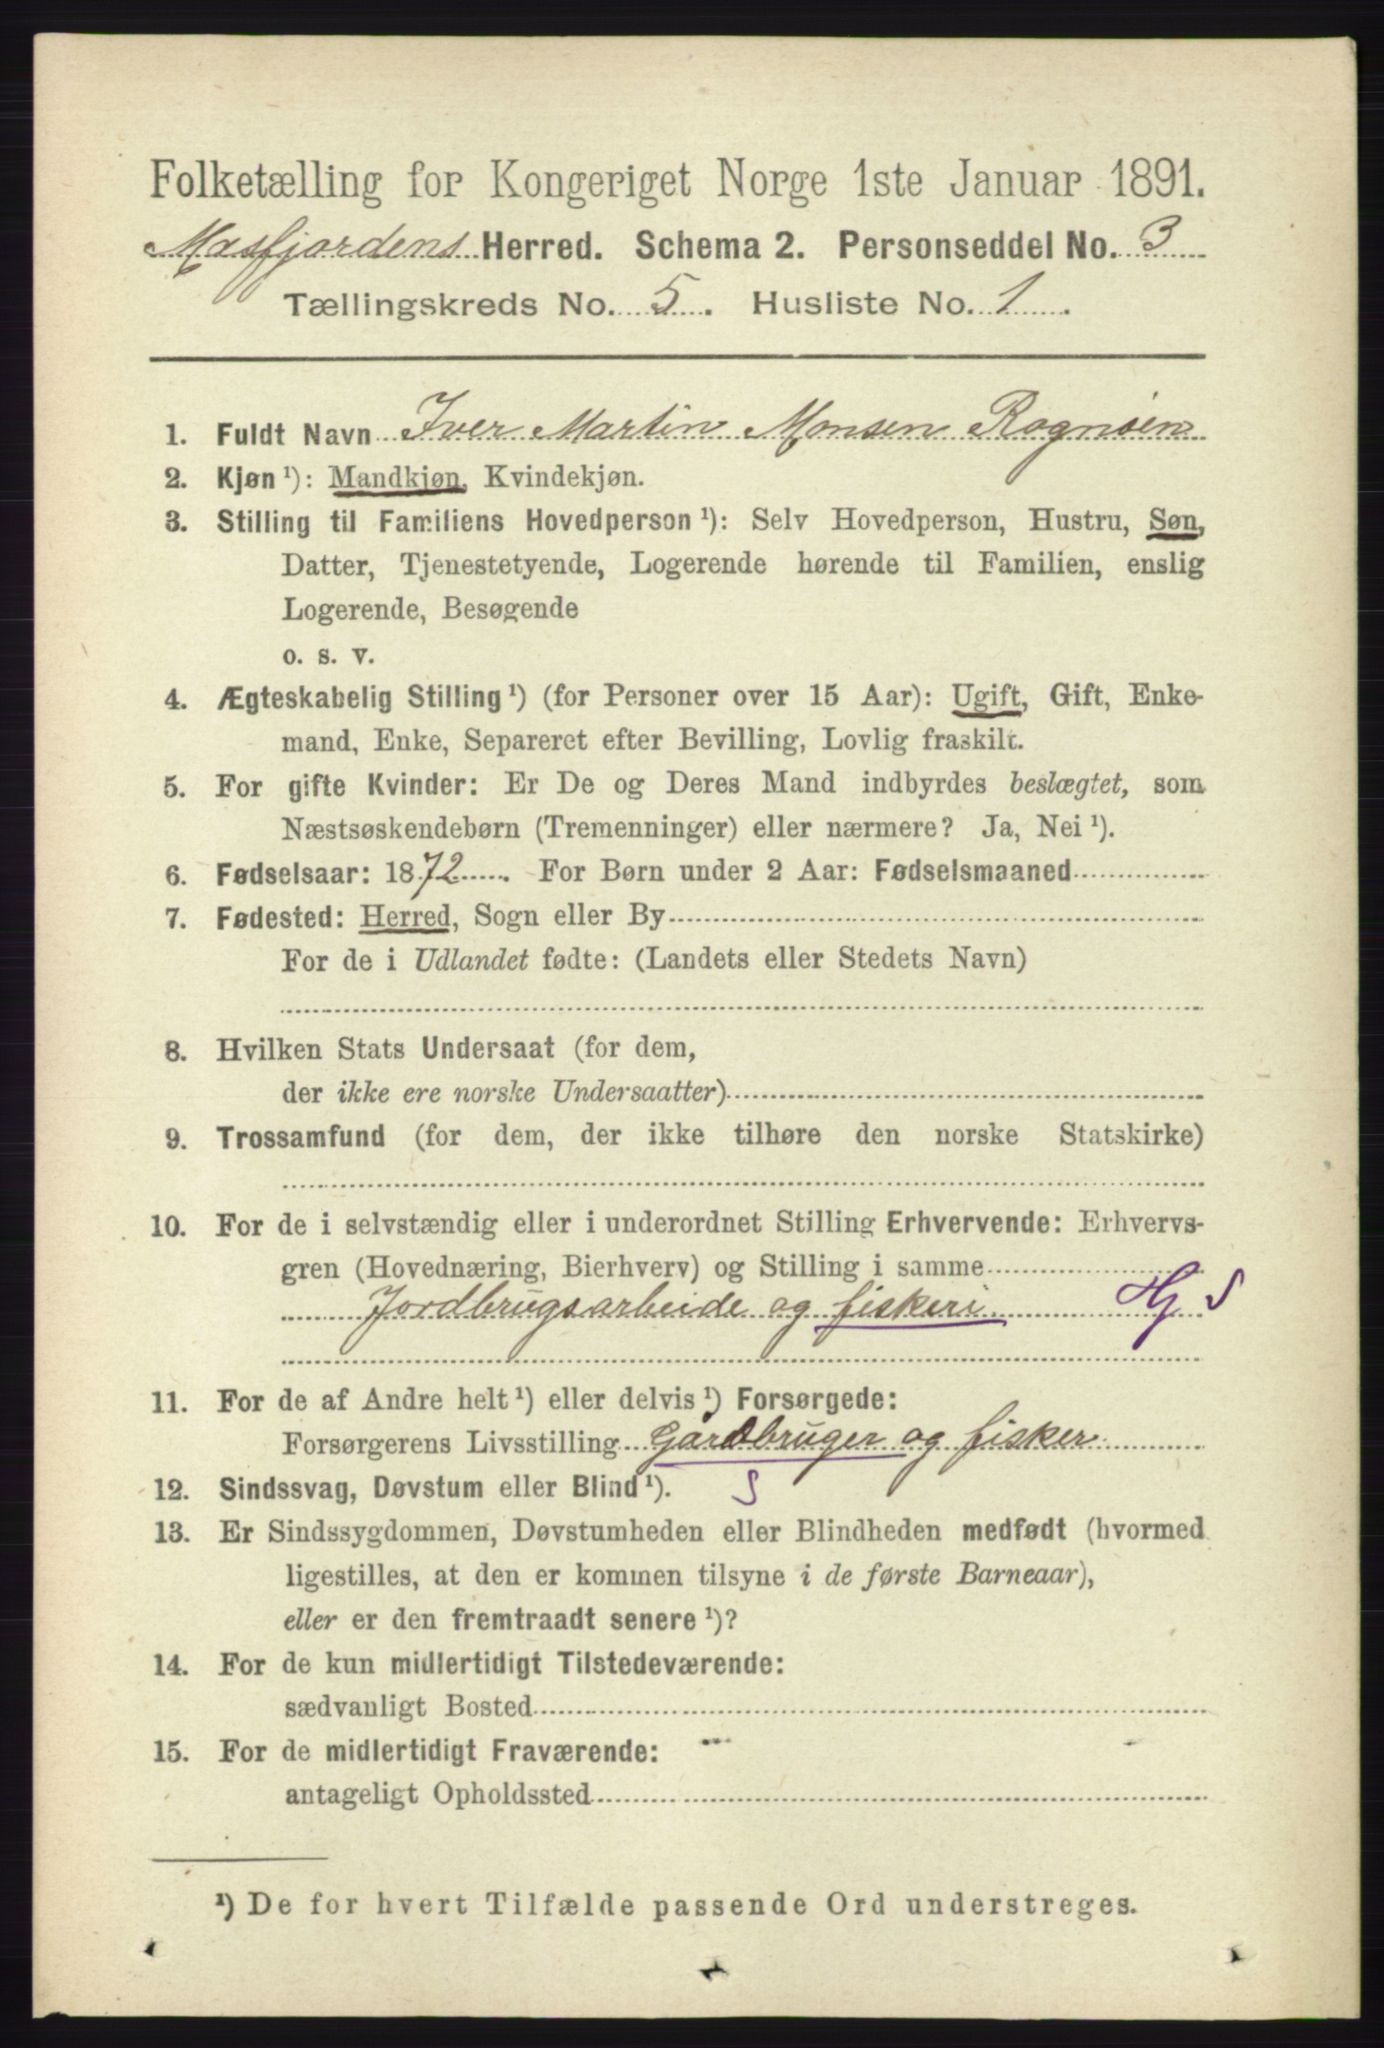 Folketælling for Kongeriget Norge 1ste Januar 1891.
Masfjordens Herred. Schema 2. Personseddel No. 3
Tællingskreds No. 5. Husliste No. 1.
1. Fuldt Navn Iver Martin Monsen Rognsøen
2. Kjøn ¹): Mandkjøn, Kvindekjøn.
3. Stilling til Familiens Hovedperson ¹): Selv Hovedperson, Hustru, Søn,
Datter, Tjenestetyende, Logerende hørende til Familien, enslig
Logerende, Besøgende
o. s. v.
4. Ægteskabelig Stilling ¹) (for Personer over 15 Aar): Ugift, Gift, Enke-
mand, Enke, Separeret efter Bevilling, Lovlig fraskilt.
5. For gifte Kvinder: Er De og Deres Mand indbyrdes beslægtet, som
Næstsøskendebørn (Tremenninger) eller nærmere? Ja, Nei ¹).
6. Fødselsaar: 1872. For Børn under 2 Aar: Fødselsmaaned
7. Fødested: Herred, Sogn eller By
For de i Udlandet fødte: (Landets eller Stedets Navn)
8. Hvilken Stats Undersaat (for dem,
der ikke ere norske Undersaatter)
9. Trossamfund (for dem, der ikke tilhøre den norske Statskirke)
10. For de i selvstændig eller i underordnet Stilling Erhvervende: Erhvervs-
gren (Hovednæring, Bierhverv) og Stilling i samme
Jordbrugsarbeide og fiskeri Hj S
11. For de af Andre helt ¹) eller delvis ¹) Forsørgede:
Forsørgerens Livsstilling Gårdbruger og fisker
12. Sindssvag, Døvstum eller Blind ¹). S
13. Er Sindssygdommen, Døvstumheden eller Blindheden medfødt (hvormed
ligestilles, at den er kommen tilsyne i de første Barneaar),
eller er den fremtraadt senere ¹)?
14. For de kun midlertidigt Tilstedeværende:
sædvanligt Bosted
15. For de midlertidigt Fraværende:
antageligt Opholdssted
¹) De for hvert Tilfælde passende Ord understreges.